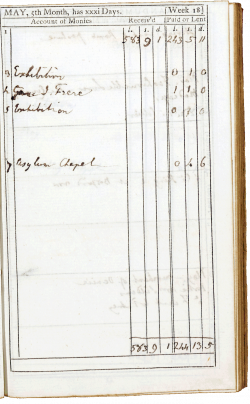 MAY, 5th Month, has xxxi Days. Week 18
Account of Monies Receiv'd Paid or Lent
1 l. s. d. l. s. d.
583 9 1 243 5 11
3 Exhibition 0 1 0
4 Gave J. Frere 1 1 0
5 Exhibition 0 1 0
7 Asylum Chapel 0 4 6
583 9 1 244 13 5